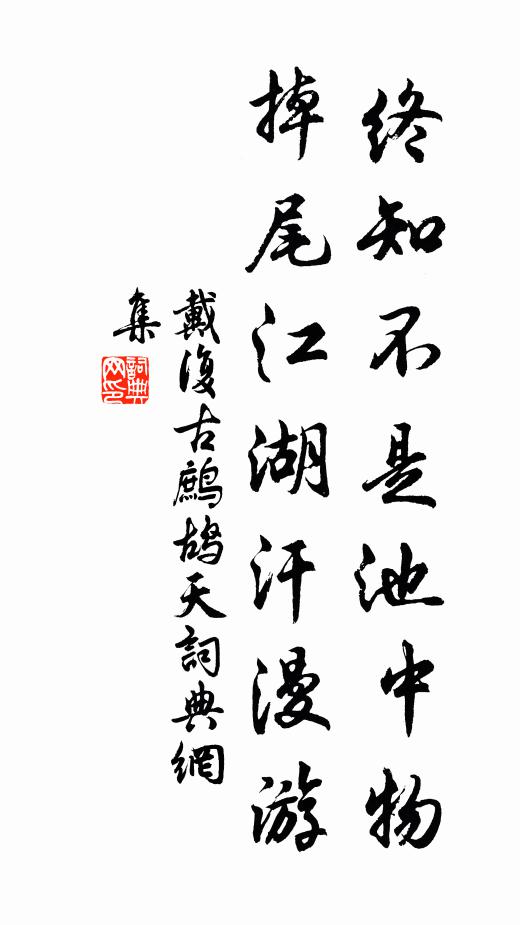 終知不是池中物
掉尾江湖汗漫游
戴復古鷓鴣天詞典網
集
詞典
网印